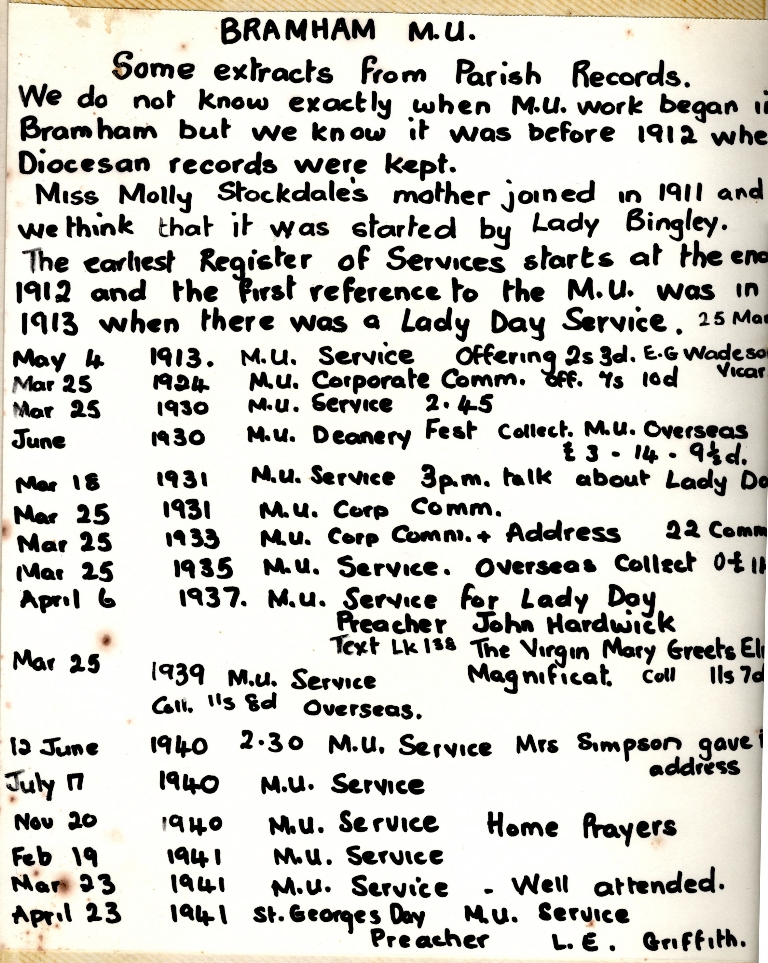 BRAMHAM M.U.
Some extracts from Parish Records.
We do not know exactly when M.U. work began i
Bramham but we know it was before 1912 whe
Diocesan records were kept.
Miss Molly Stockdale's mother joined in 1911 and
we think that it was started by Lady Bingley.
The earliest Register of Services starts at the end
1912 and the first reference to the M.U. was in
1913 when there was a Lady Day Service. 25 Mar
May 4 1913. M.U. Service Offering 2s 3d. E.G Wadeso
Vicar
Mar 25 1924 M.U. Corporate Comm. off. 7s 10d
Mar 25 1930 M.U. Service 2.45
June 1930 M.U. Deanery Fest Collect. M.U. Overseas
£3 - 14 - 9½d.
Mar 18 1931 M.U. Service 3p.m. talk about Lady Da
Mar 25 1931 M.U. Corp Comm.
Mar 25 1933 M.U. Corp Comm. + Address 22 Comm
Mar 25 1935 M.U. Service. Overseas Collect
April 6 1937. M.U. Service for Lady Day
Preacher John Hardwick
Text Lk 1 The Virgin Mary Greets Eli
Magnificat. Coll 11s 7d
Mar 25 1939 M.U. Service
Coll. 11s 8d Overseas.
12 June 1940 2.30 M.U. Service Mrs Simpson gave
address
July 17 1940 M.U. Service
Nov 20 1940 M.U. Service Home Prayers
Feb 19 1941 M.U. Service
Mar 23 1941 M.U. Service - Well attended.
April 23 1941 St. Georges Day M.U. Service
Preacher L.E. Griffith.